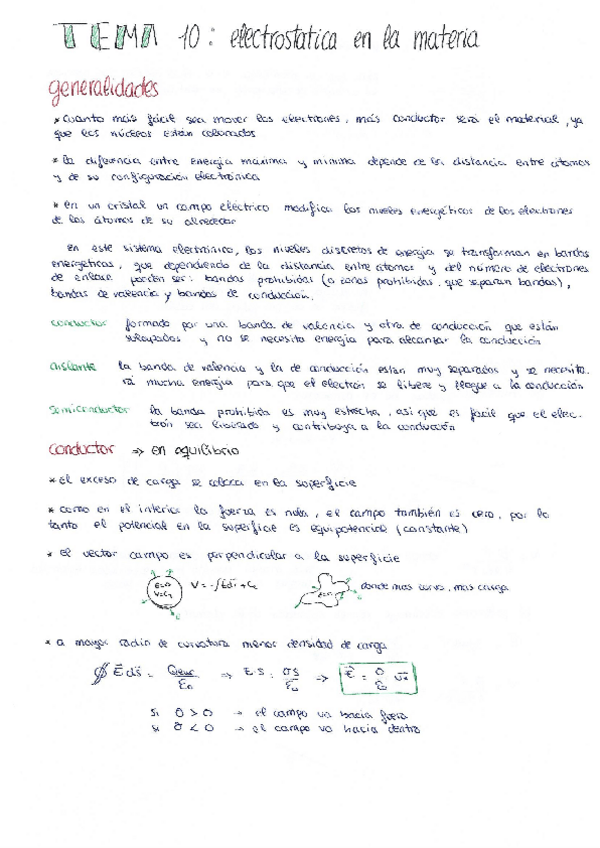 TEMA 10: electrostatica en la materia
generalidades
* cuanto más fácil sea mover los electrones, más conductor será el material, ya
que los núcleos están colocados
* la diferencia entre energía máxima y mínima depende de la distancia entre átomos
y de su configuración electrónica
* en un cristal un campo eléctrico modifica los niveles energéticos de los electrones
de los átomos de su alrededor
en este sistema electrónico, los niveles discretos de energía se transforman en bandas
energéticas, que dependiendo de la distancia entre átomos y del número de electrones
de enlace pueden ser: bandas prohibidas (o zonas prohibidas, que separan bandas),
bandas de valencia y bandas de conducción.
conductor formado por una banda de valencia y otra de conducción que están
solapadas y no se necesita energía para alcanzar la conducción
aislante la banda de valencia y la de conducción están muy separadas y se necesita-
rá mucha energía para que el electrón se libere y llegue a la conducción
semiconductor la banda prohibida es muy estrecha, así que es fácil que el elec-
trón sea liberado y contribuya a la conducción
conductor => en equilibrio
* el exceso de carga se coloca en la superficie
* como en el interior la fuerza es nula, el campo también es cero, por lo
tanto el potencial en la superficie es equipotencial (constante)
* el vector campo es perpendicular a la superficie
E=0 V = -∫Edl + C₁ donde mas curvo, mas carga
V=C₁
* a mayor radio de curvatura menor densidad de carga
∮ E ds = Qenc/ε₀ => E·S = σS/ε₀ => E = σ/ε₀ un
si σ > 0 → el campo va hacia fuera
si σ < 0 → el campo va hacia dentro